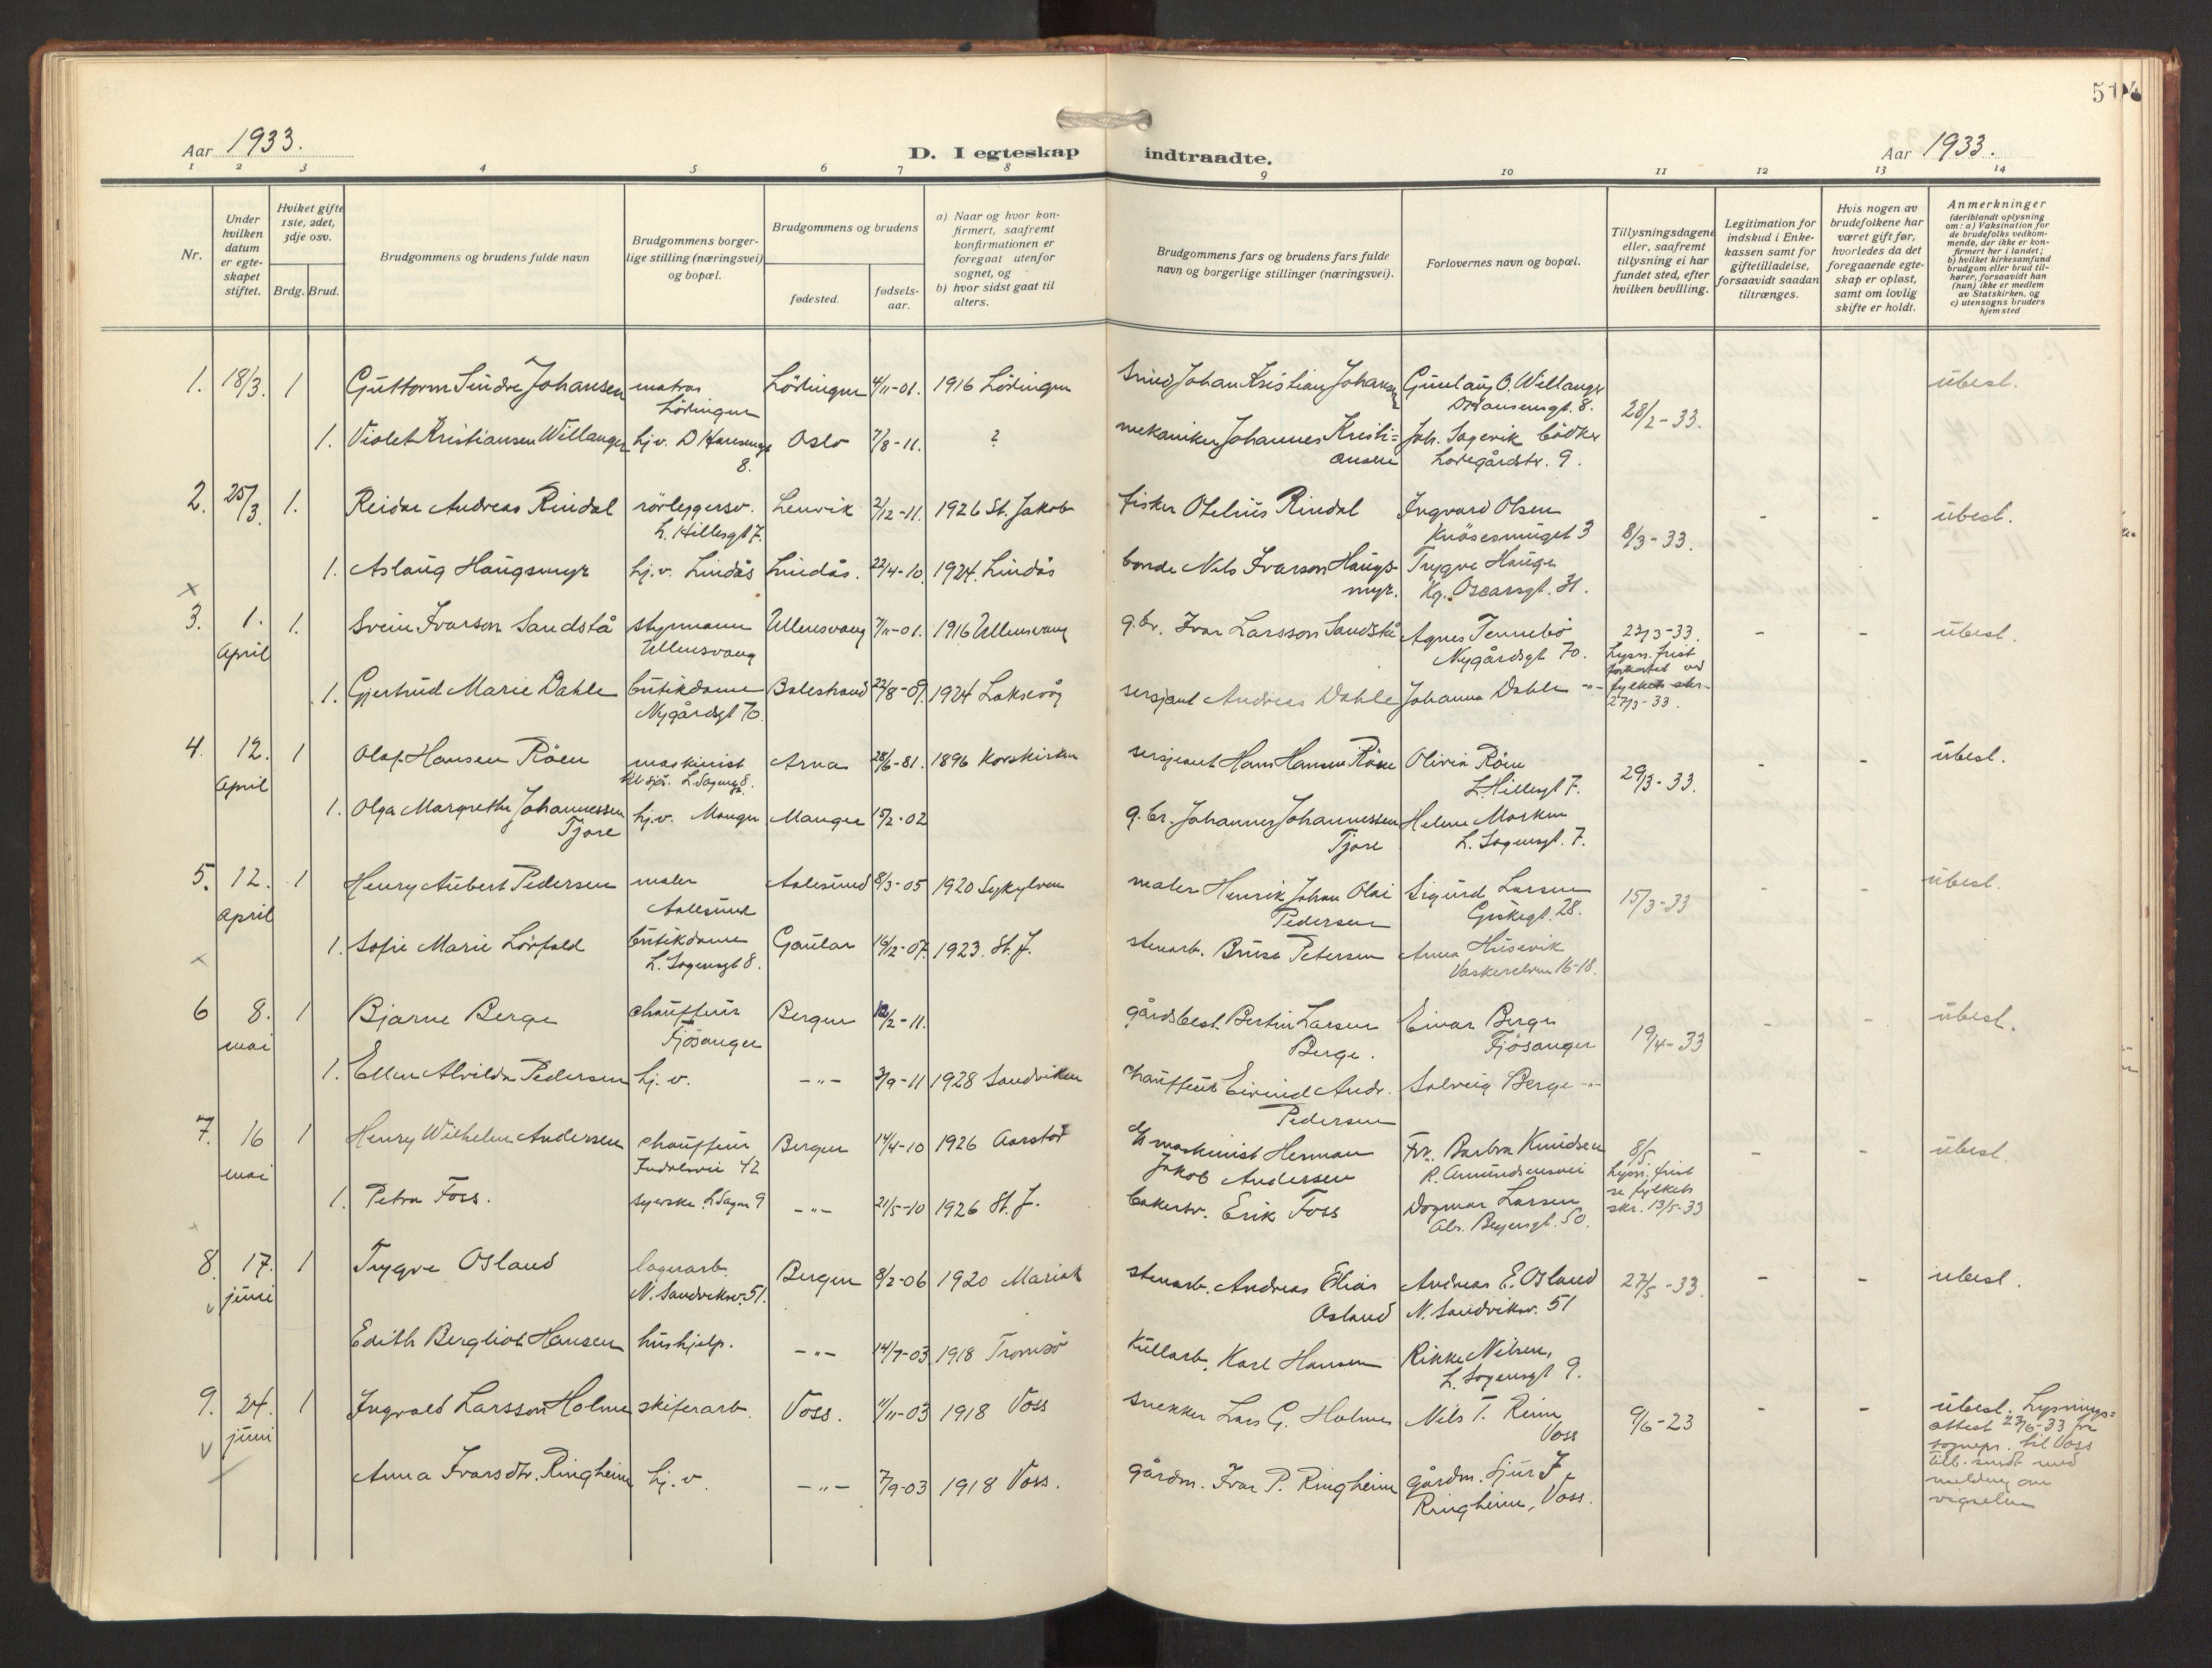 51
Aar 1933.
D. I egteskap indtraadte.
Aar 1933.
1 2 3 4 5 6 7 8 9 10 11 12 13 14
Nr.
Under hvilken datum er egteskapet stiftet.
Hviket gifte 1ste, 2det, 3dje osv.
Brdg. Brud.
Brudgommens og brudens fulde navn
Brudgommens borgerlige stilling (næringsvei) og bopæl.
Brudgommens og brudens
fødested.
fødselsaar.
a) Naar og hvor konfirmert, saafremt konfirmationen er foregaat utenfor sognet, og
b) hvor sidst gaat til alters.
Brudgommens fars og brudens fars fulde navn og borgerlige stillinger (næringsvei).
Forlovernes navn og bopæl.
Tillysningsdagene eller, saafremt tillysning ei har fundet sted, efter hvilken bevilling.
Legitimation for indskud i Enkekassen samt for giftetilladelse, forsaavidt saadan tiltrænges.
Hvis nogen av brudefolkene har været gift før, hvorledes da det foregaaende egteskap er opløst, samt om lovlig skifte er holdt.
Anmerkninger
(deriblandt oplysning om: a) Vaksination for de brudefolks vedkommende, der ikke er konfirmert her i landet; b) hvilket kirkesamfund brudgom eller brud tilhører, forsaavidt han (hun) ikke er medlem av Statskirken, og c) utensogns bruders hjemsted
1. 18/3. 1 Guttorm Sindre Johansen matros Lödingen Lödingen 4/11-01. 1916 Lödingen Smed Johan Kristian Johansen Gunlaug O. Willanger D Hansensgt. 8. 28/2-33. ubesl.
1. Violet Kristiansen Willanger hj.v. D Hansensgt 8. Oslo 7/8-11. ? mekaniker Johannes Kristiansen Joh. Sagevik bödker Ladegårdstr. 9.
2. 25/3. 1. Reidar Andreas Rindal rörleggersv. L. Hillesgt 7. Lenvik 2/12-11. 1926 St. Jakob fisker Otelius Rindal Ingvard Olsen Knösesmuget 3 8/3-33. - - ubesl.
1. Aslaug Haugsmyr hj.v. Lindås Lindås. 22/4-10. 1924 Lindås bonde Nils Ivarson Haugsmyr. Trygve Hauge Kg. Oscarsgt. 31.
3. 1. April 1. Svein Ivarson Sandstå styrmann Ullensvang Ullensvang 7/11-01. 1916 Ullensvang g.br. Ivar Larsson Sandstå Agnes Tennebö Nygårdsgt 70. 23/3-33. Lysn. frist forkortet ved fylkets skr. 27/3-33. - - ubesl.
1. Gjertrud Marie Dahle butikdame Nygårdsgt 70. Balestrand 22/8-09. 1924 Laksevåg sersjant Andreas Dahle Johanna Dahle -"-
4. 12. April 1 Olaf Hansen Röen maskinist L. Sagensgt 8. Arna 28/6-81. 1896 Korskirken sersjeant Hans Hansen Röen Olivia Röen L. Hillesgt 7. 29/3-33. - - ubesl.
1. Olga Margrethe Johannessen Tjore hj.v. Manger Manger 15/2-02 g.br. Johannes Johannessen Tjore Helene Mosken L. Sagensgt. 7.
5. 12. April 1 Henry Aubert Pedersen maler Aalesund Aalesund 8/3-05 1920 Sykylven maler Henrik Johan Olai Pedersen Sigurd Larsen Giskegt. 28. 15/3-33 - - ubesl.
1. Sofie Marie Lörfald butikdame L. Sagensgt 8. Gaular 16/12-07. 1923. St. J. stenarb. Bruse Petersen Anna Husevik Vaskerelven 16-18.
6 8. mai 1 Bjarne Berge chauffeur Fjösanger Bergen 12/2-11. gårdsbest. Bertin Larsen Berge. Einar Berge Fjösanger 19/4-33 - - ubesl.
1. Ellen Alvilda Pedersen hj.v. -"- 3/9-11 1928 Sandviken chauffeur Eivind Andr. Pedersen Solveig Berge -"-
7. 16 mai 1 Henry Wilhelm Andersen chauffeur Indalsvei 42 Bergen 14/4-10 1926 Aarstad maskinist Herman Jakob Andersen Frk. Barbra Knudsen R. Amundsensvei 8/5 Lysn. frist se fylkets skr. 13/5-33 - - ubesl.
1. Petra Foss. syerske L. Sagen 9 -"- 21/5-10 1926 St. J. bakersv. Erik Foss Dagmar Larsen Abs. Beyersgt. 50.
8. 17. juni 1 Trygve Osland lagerarb. N. Sandviksv. 51. Bergen 8/2-06 1920 Mariak stenarb. Andreas Elias Osland Andreas E. Osland N. Sandviksv. 51 27/5-33. - - ubesl.
Edith Bergliot Hansen hushjelp. -"- 14/7-03 1918 Tromsö Kullarb. Karl Hansen Rikke Nilsen, L. Sagensgt 9.
9. 24. juni 1 Ingvald Larsson Holme skiferarb. Voss. 11/11-03 1918 Voss snekker Lars G. Holme Nils T. Rene Voss 9/6-23 - - ubesl. Lysningsattest 23/6-33 fra sognepr. til Voss tilb. sendt med melding om vigselen
Anna Ivarsdtr. Ringheim hj.v. -"- 7/9-03 1918 Voss. gårdm. Ivar P. Ringheim gårdm. Sjur I. Ringheim, Voss.